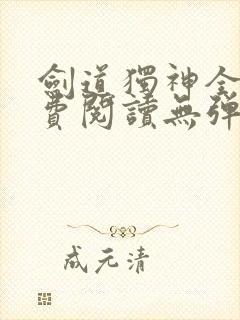 劍道獨神全
費閱讀無彈
成元清